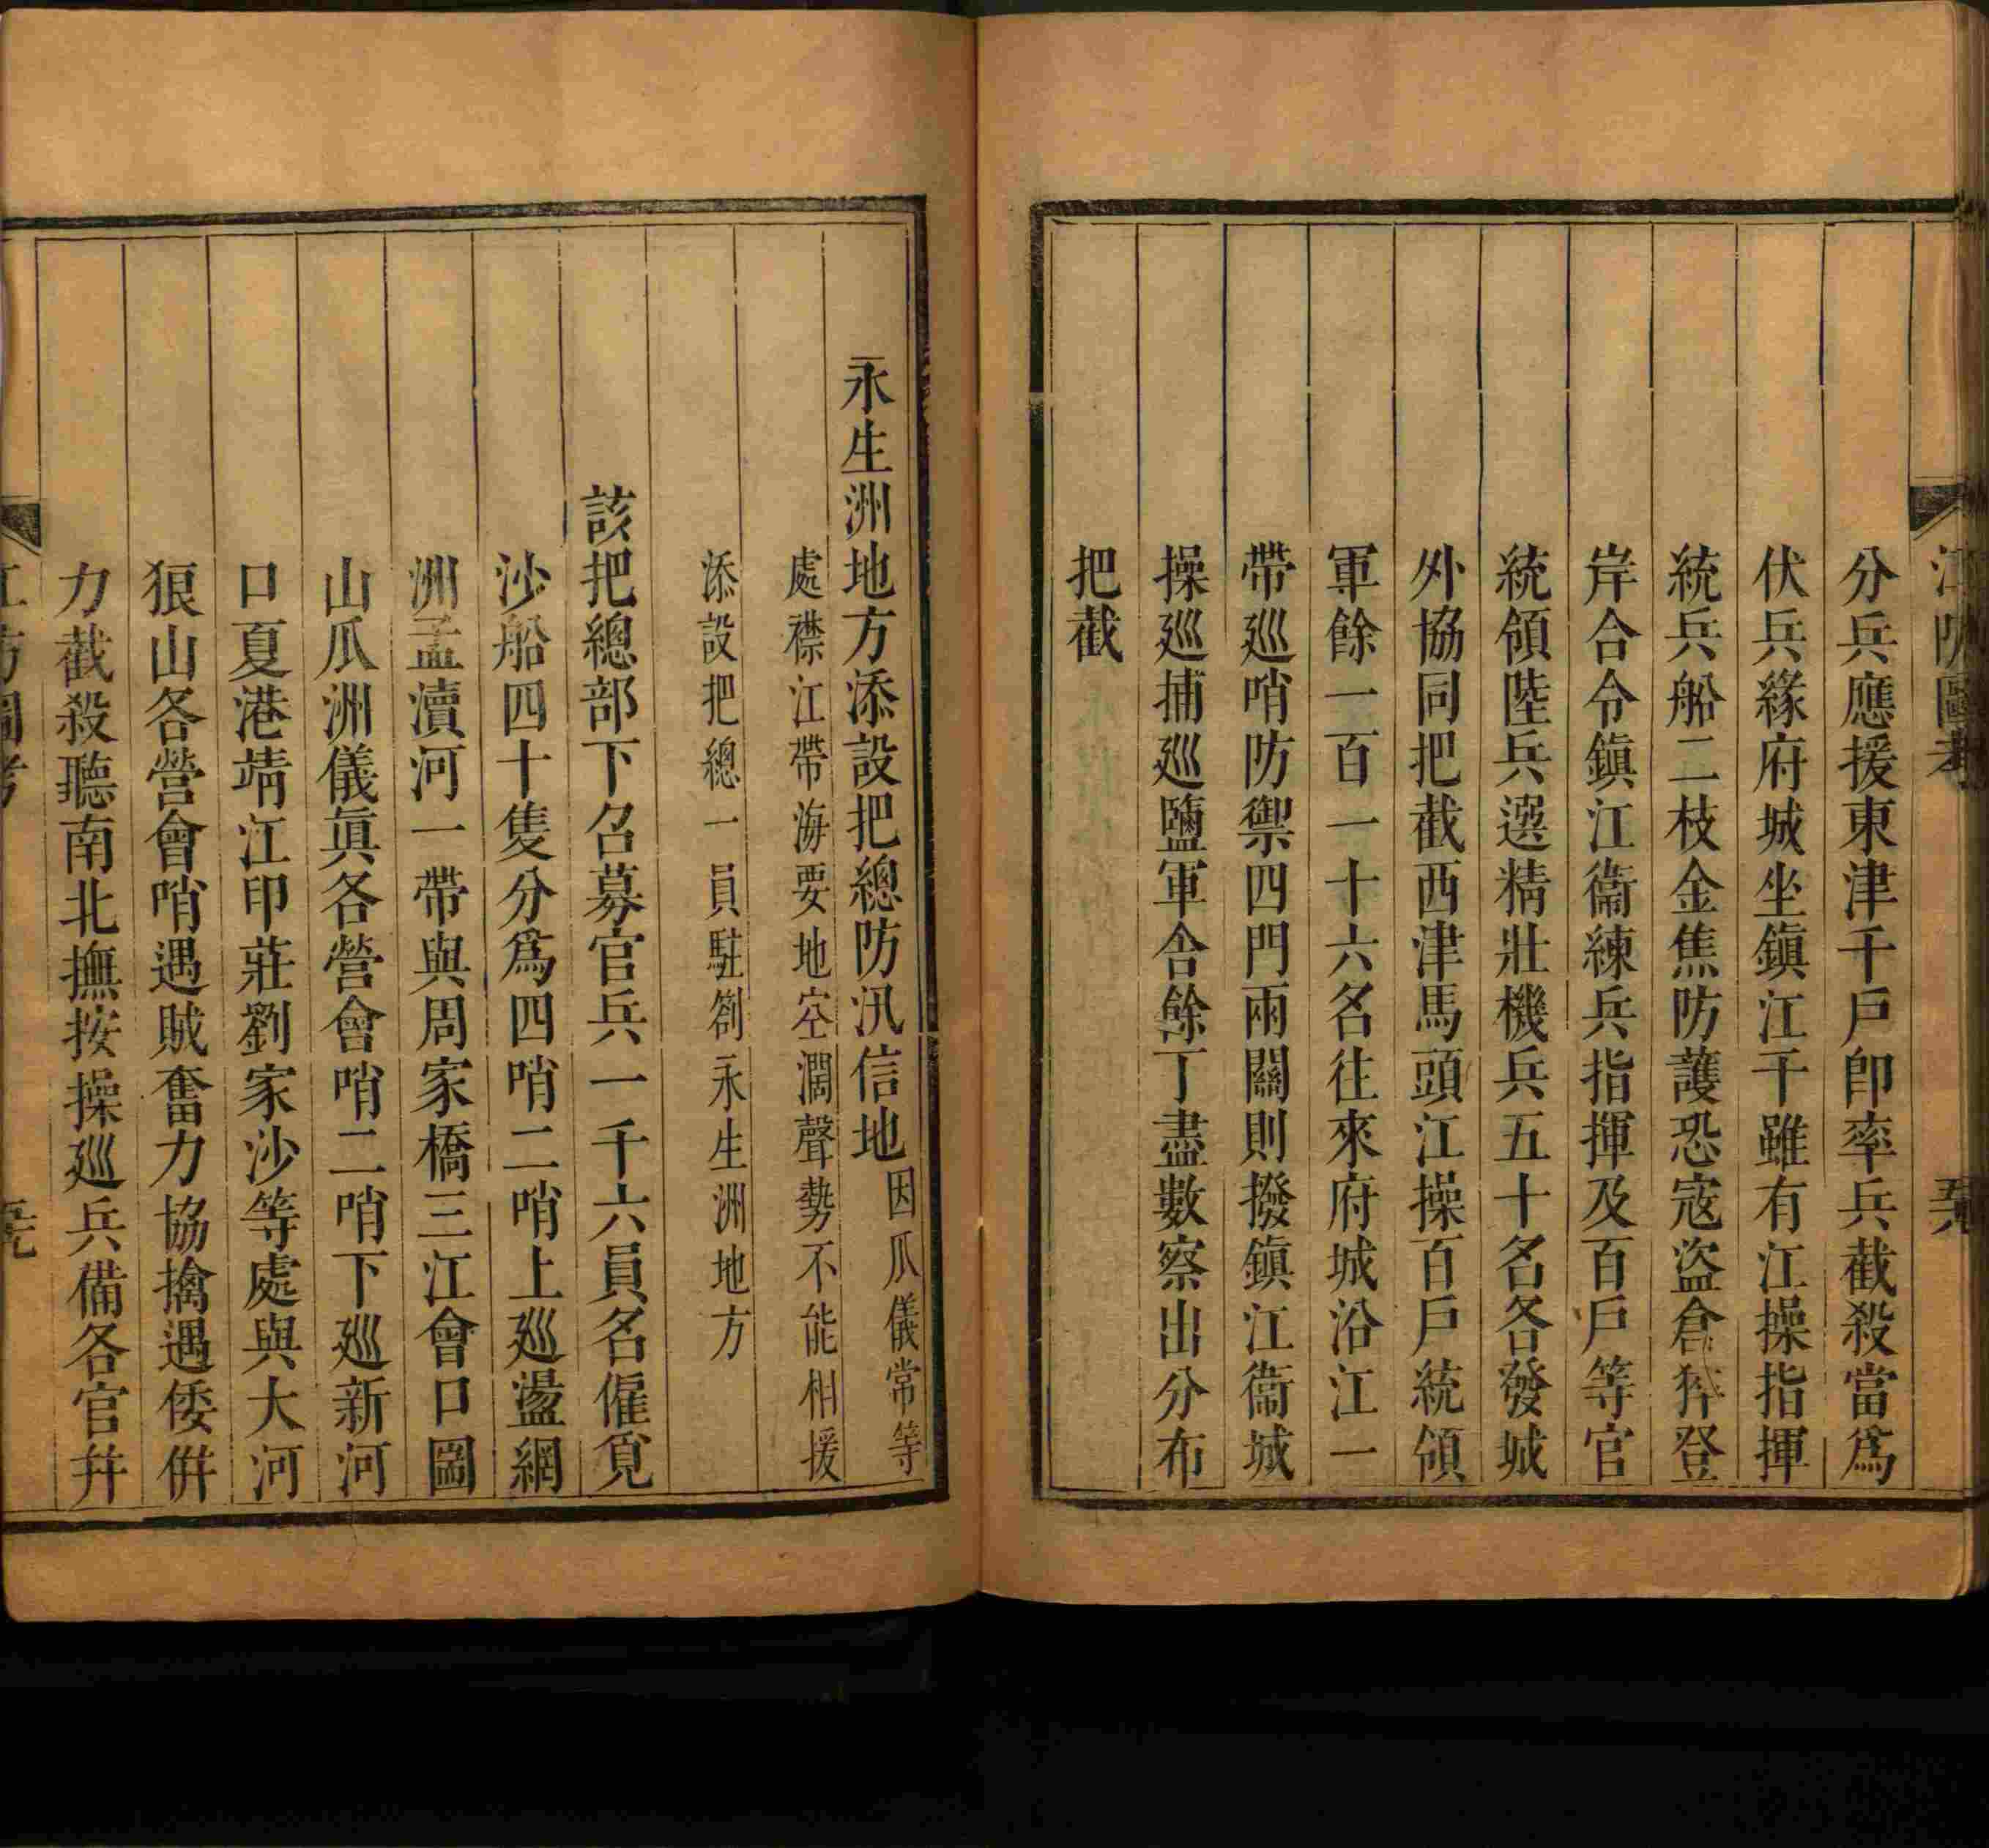 江防圖考
分兵應援東津千戶卽率兵截殺當爲
伏兵緣府城坐鎮江干雖有江操指揮
統兵船二枝金焦防護恐寇盜倉猝登
岸合令鎮江衞練兵指揮及百戶等官
統領陸兵選精壯機兵五十名各發城
外協同把截西津馬頭江操百戶統領
軍餘一百一十六名往來府城沿江一
帶巡哨防禦四門兩關則撥鎮江衞城
操巡捕巡鹽軍舍餘丁盡數察出分布
把截
永生洲地方添設把總防汛信地因瓜儀常等
處襟江帶海要地空濶聲勢不能相援
添設把總一員駐劄永生洲地方
該把總部下召募官兵一千六員名僱覔
沙船四十隻分爲四哨二哨上巡盪網
洲孟瀆河一帶與周家橋三江會口圌
山瓜洲儀眞各營會哨二哨下巡新河
口夏港靖江印莊劉家沙等處與大河
狼山各營會哨遇賊奮力協擒遇倭併
力截殺聽南北撫按操巡兵備各官幷
江防圖考